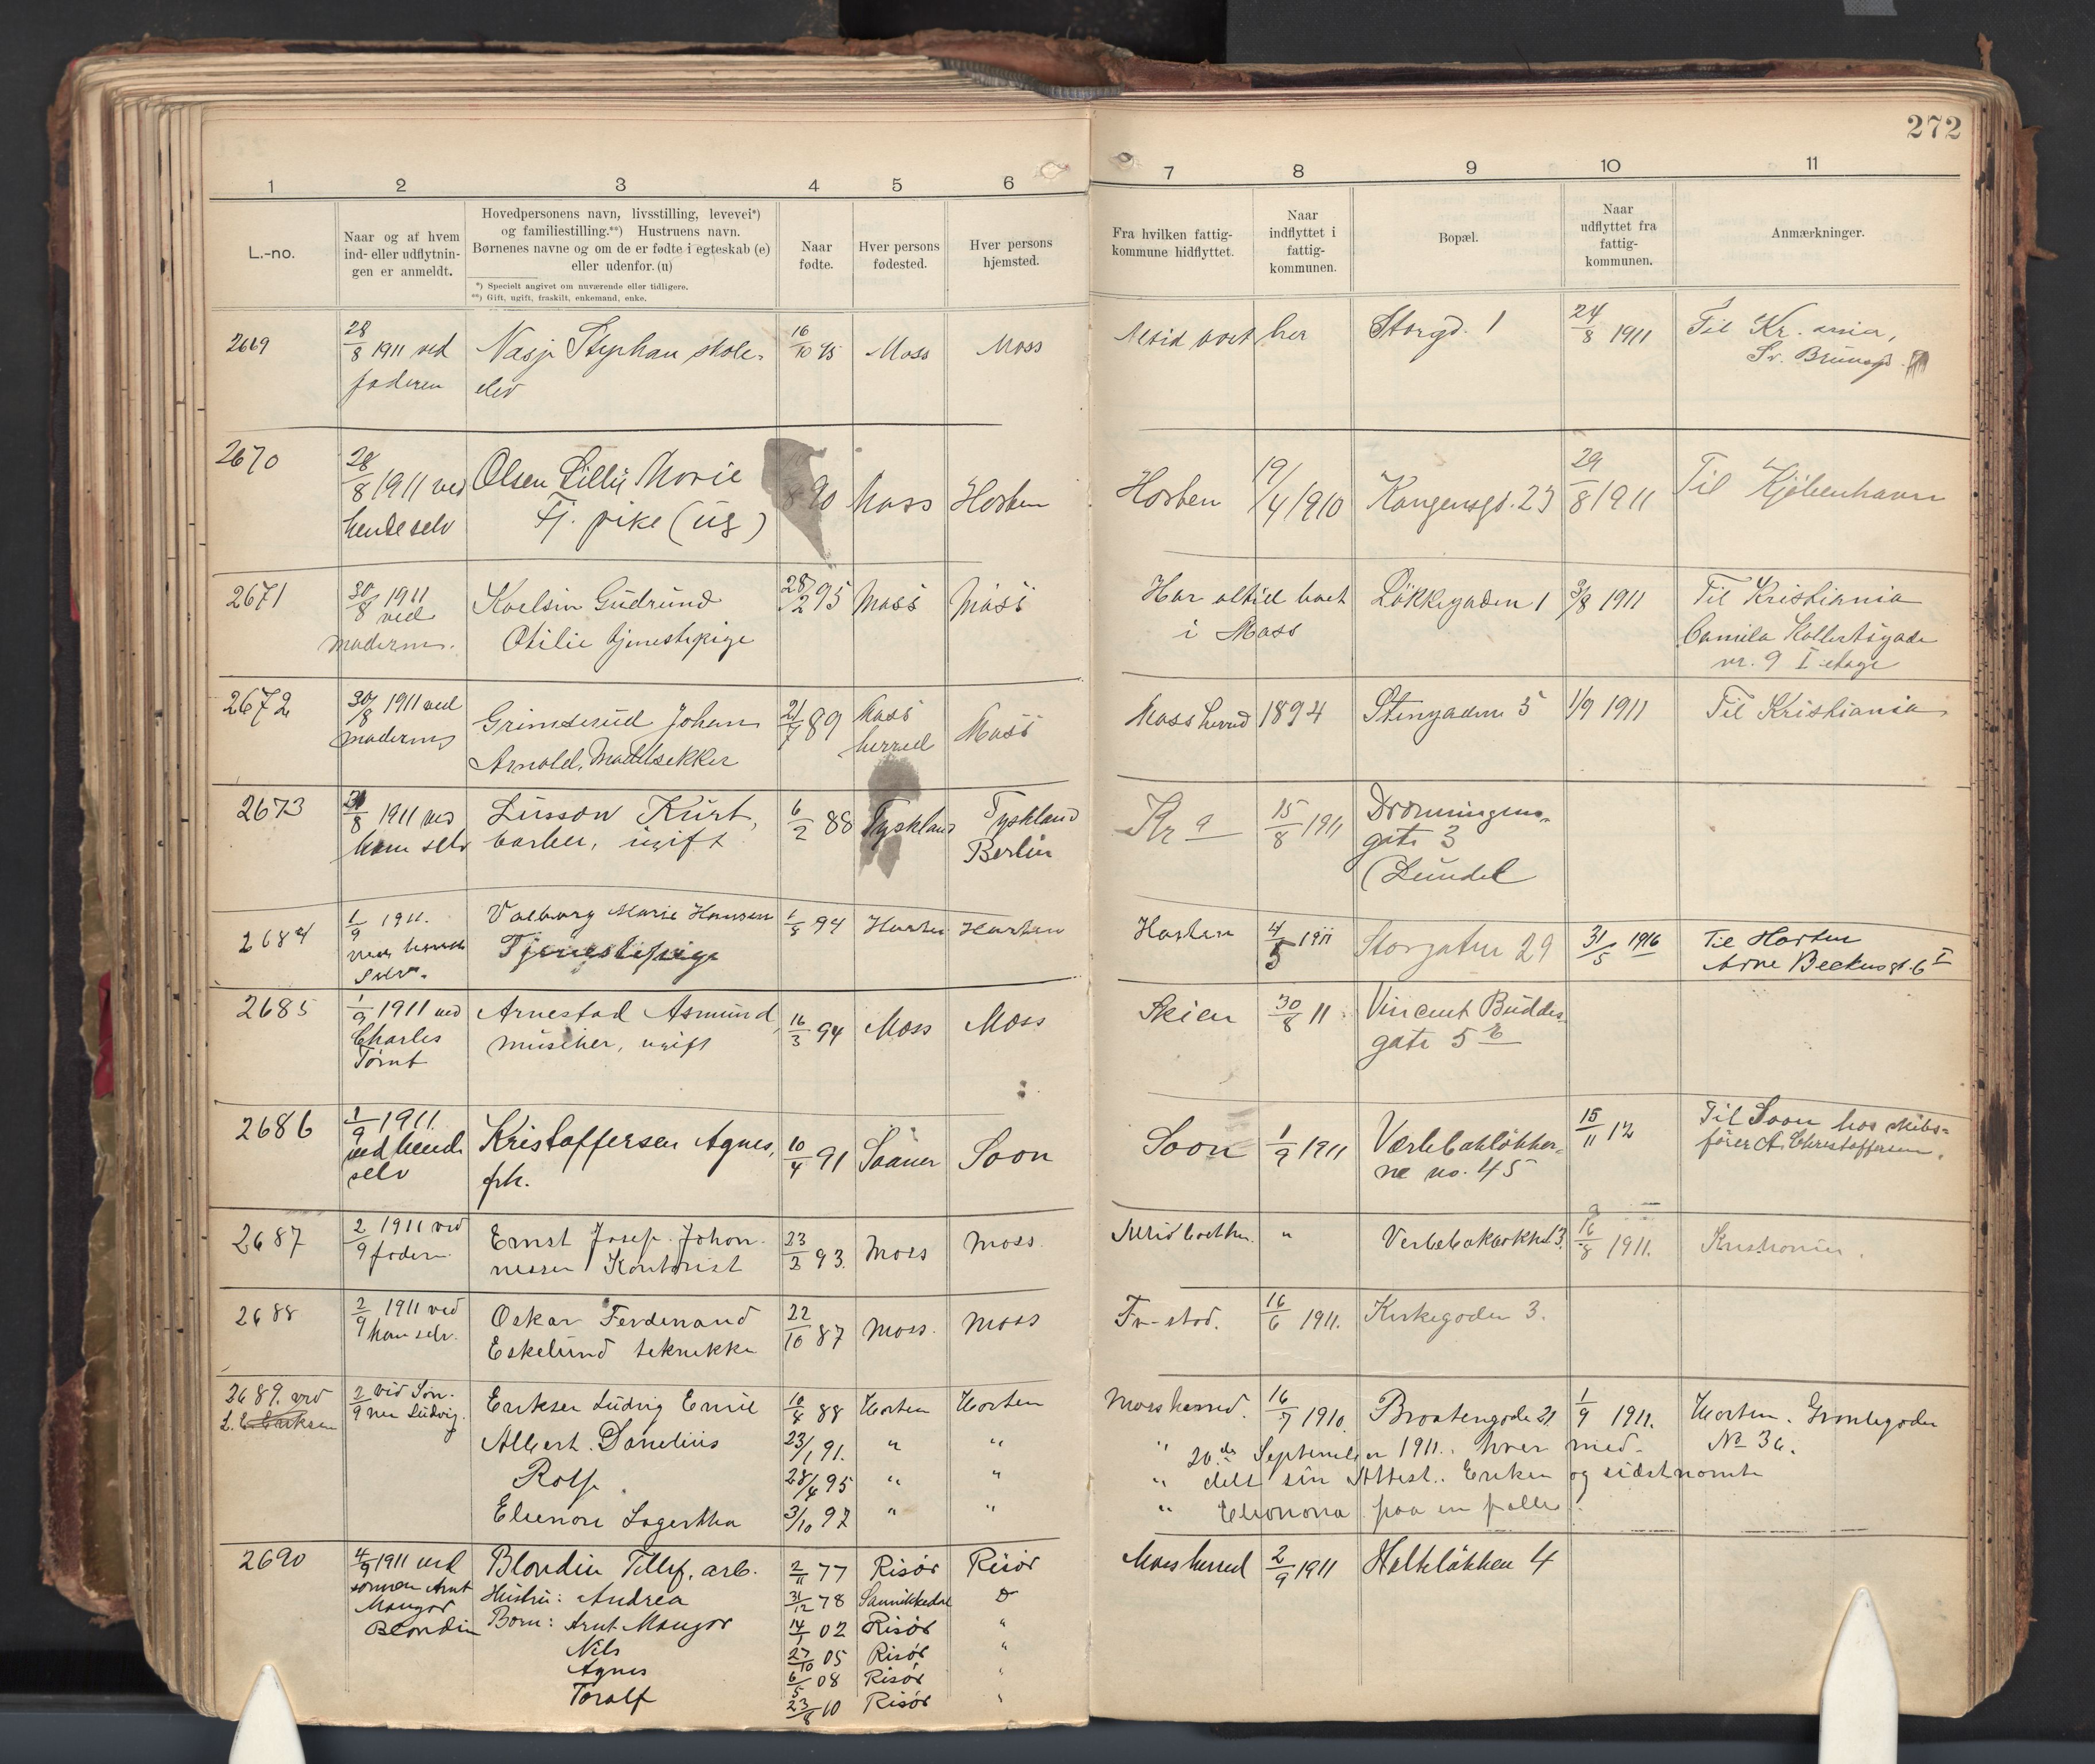 272
1 2 3 4 5 6 7 8 9 10 11
L.-no.
Naar og af hvem
ind- eller udflytnin-
gen er anmeldt.
Hovedpersonens navn, livsstilling, levevei*)
og familiestilling.**) Hustruens navn.
Børnenes navne og om de er fødte i egteskab (e)
eller udenfor. (u)
*) Specielt angivet om nuværende eller tidligere.
**) Gift, ugift, fraskilt, enkemand, enke.
Naar
fødte.
Hver persons
fødested.
Hver persons
hjemsted.
Fra hvilken fattig-
kommune hidflyttet.
Naar
indflyttet i
fattig-
kommunen.
Bopæl.
Naar
udflyttet fra
fattig-
kommunen.
Anmærkninger.
2669 28/8 1911 ved Stephan skole- 16/10 95 Moss Moss Altid boet her Storgd. 1 24/8 1911 Til Kr.ania,
faderen elev
2670 28/8 1911 ved Olsen Lilly Marie 90 Moss Horten Horten 19/4 1910 Kongensgd. 23 29/8 1911 Til Kjöbenhavn
hende selv Tj. pike (ug)
2671 30/8 1911 Gudrund 28/2 95 Moss Moss Har altid boet Løkkegaden 1 3/8 1911 Til Kristiania
ved
moderen. Otilie tjenestepige i Moss Camilla Kolletsgade
nr. 9 I etage
2672 30/8 1911 ved Grimserud Johan 21/7 89 Moss Moss Moss herred 1894 Stengaden 5 1/9 1911 Til Kristiania
moderen Arnold, herred
2673 31/8 1911 ved Lusson Kurt, 6/2 88 Tyskland Tyskland Kr a 15/8 1911 Dronningens-
ham selv barber, ugift Berlin gate 3
(Lundel
2684 1/9 1911. Valborg Marie Hansen 94 Horten Horten Horten 4/5 1911 Storgaten 29 31/5 1916 Til Horten
selv. Tjenestepige Arne Beckersgt. 6 I
2685 1/9 1911 ved Arnestad Asmund, 16/3 94 Moss Moss Skien 30/8 11 Vincent Buddes-
Charles musiker, ugift gate 5 b
Tømt
2686 1/9 1911. Kristoffersen Agnes, 10/4 91 Saaner Soon Soon 1/9 1911 15/11 12 Til Soon hos skibs-
ved hende frk. ne no. 45 fører A. Christoffersen.
selv
2687 2/9 1911 ved Ernst Josef Johan- 23/2 93. Moss Moss Altid boet her. " 16/8 1911. Kristiania.
faderen nessen Kontorist
2688 2/9 1911 ved Oskar Ferdinand 22/10 87 Moss. Moss Fr-stad. 16/6 1911. Kirkegaden 3.
ham selv. Eskelund tekniker
2689. ved 2/9 ved Søn- Eriksen Ludvig Emil 10/4 88 Horten Horten Moss herred. 16/7 1910. Braatengade 21 1/9 1911. Horten.
L. E. Eriksen nen Ludvig. Albert Danelius 23/1 91. " " " 20.de September 1911. hver med- No 36.
Rolf 28/4 95 " " " delt sin Attest. Eriksen og sidstnævnte
Elenore Lagertha 3/10 97 " " " Eleonora paa en
2690 4/9 1911 ved Blondin Tellef, arb. 2/11 77 Risør Risør Moss herred 2/9 1911 Holtløkken 4
sønnen Arnt Hustru: Andrea 31/12 78 Sannikedal D
Mangor Born: Arnt Mangor 14/1 02 Risør "
Blondin Nils 27/10 05 Risør "
Agnes 6/5 08 Risør "
Toralf 23/8 10 Risør "